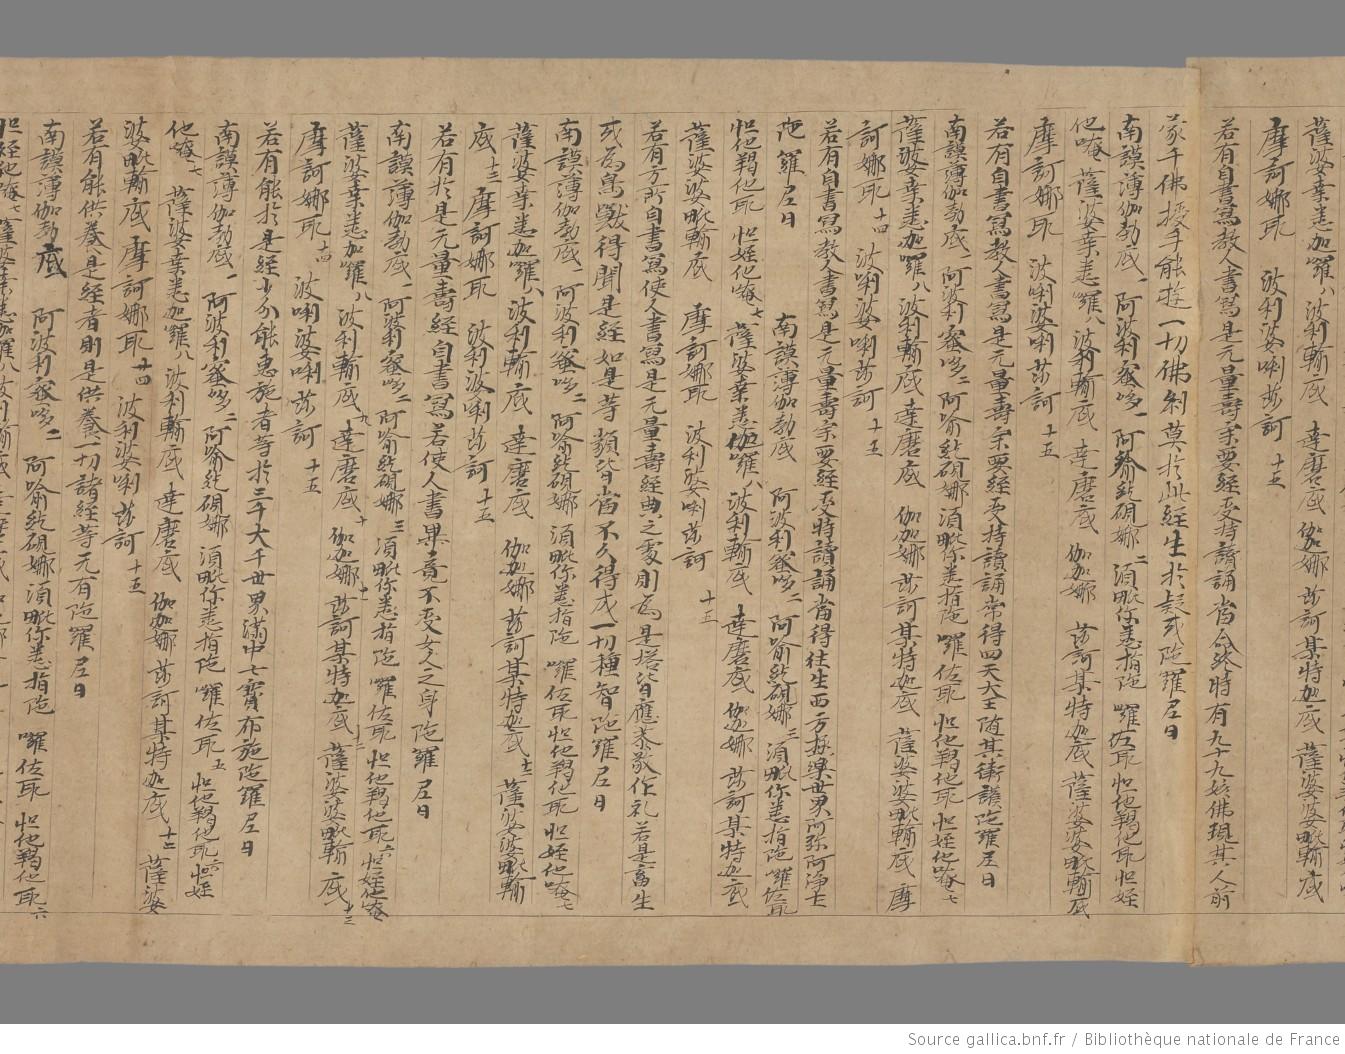 薩婆桑悉迦囉八 波利輸底 達磨底 伽迦娜 莎訶某特迦底 薩婆婆毗輸底
摩訶娜耶 波利婆唎莎訶 十五
若有自書寫教人書寫是无量壽宗要經受持讀誦當命終時有九十九姟佛現其人前
蒙千佛授手能遊一切佛刹莫於此經生於疑或陁羅尼曰
南謨薄伽勃底一 阿波利蜜哆二 阿喻紇硯娜三 須毗你悉指陁 囉佐耶 怛他羯他耶 怛姪
他唵 薩婆桑悉迦囉八 波利輸底 達磨底 伽迦娜 莎訶某特迦底 薩婆婆毗輸底
摩訶娜耶 波唎婆唎莎訶 十五
若有自書寫教人書寫是无量壽宗要經受持讀誦常得四天大王随其衛護陁羅尼曰
南謨薄伽勃底一 阿波利蜜哆二 阿喻紇硯娜 須毗你悉指陁 囉佐耶 怛他羯他耶 怛姪他唵七
薩婆桑悉迦囉八 波利輸底 達磨底 伽迦娜 莎訶某特迦底 薩婆婆毗輸底 摩
訶娜耶十四 波唎婆唎莎訶 十五
若有自書寫教人書寫是无量壽宗要經受持讀誦當得往生西方極樂世界阿弥阿淨土
陁羅尼曰 南謨薄伽勃底 阿波利蜜哆二 阿喻紇硯娜三 須毗你悉指陁 囉佐耶
怛他羯他耶 怛姪他唵七 薩婆桑悉伽囉八 波利輸底 達磨底 伽迦娜 莎訶某特迦底
薩婆婆毗輸底 摩訶娜耶 波利婆唎莎訶 十五
若有方所自書寫使人書寫是无量壽經典之處則為是塔皆應恭敬作礼若是畜生
或為鳥獸得聞是經如是等類皆當不久得成一切種智陁羅尼曰
南謨薄伽勃底一 阿波利蜜哆二 阿喻紇硯娜 須毗你悉指陁 囉佐耶 怛他羯他耶 怛姪他唵七
薩婆桑悉迦囉八 波利輸底 達磨底 伽迦娜 莎訶某特迦底十二 薩婆婆毗輸
底十三 摩訶娜耶 波利婆唎莎訶 十五
若有於是无量壽經自書寫若使人書畢竟不受女人之身陁羅尼曰
南謨薄伽勃底一 阿波利蜜哆二 阿喻紇硯娜三 須毗你悉指陁 囉佐耶 怛他羯他耶六 怛姪他唵
薩婆桑悉迦囉八 波利輸底九 達磨底十 伽迦娜十一 莎訶某特迦底十二 薩婆婆毗輸底十三
摩訶娜耶十四 波唎婆唎莎訶 十五
若有能於是經少分能惠施者等於三千大千世界滿中七寶布施陁羅尼曰
南謨薄伽勃底一 阿波利蜜哆二 阿喻紇硯娜 須毗你悉指陁 囉佐耶五 怛他羯他耶六 怛姪
他唵七 薩婆桑悉迦囉八 波利輸底 達磨底 伽迦娜 莎訶某特迦底十二 薩婆
婆毗輸底 摩訶娜耶十四 波利婆唎莎訶 十五
若有能供養是經者則是供養一切諸經等无有陁羅尼曰
南謨薄伽勃底 阿波利蜜哆二 阿喻紇硯娜 須毗你悉指陁 囉佐耶 怛他羯他耶六
怛姪他唵七
Source gallica.bnf.fr / Bibliothèque nationale de France